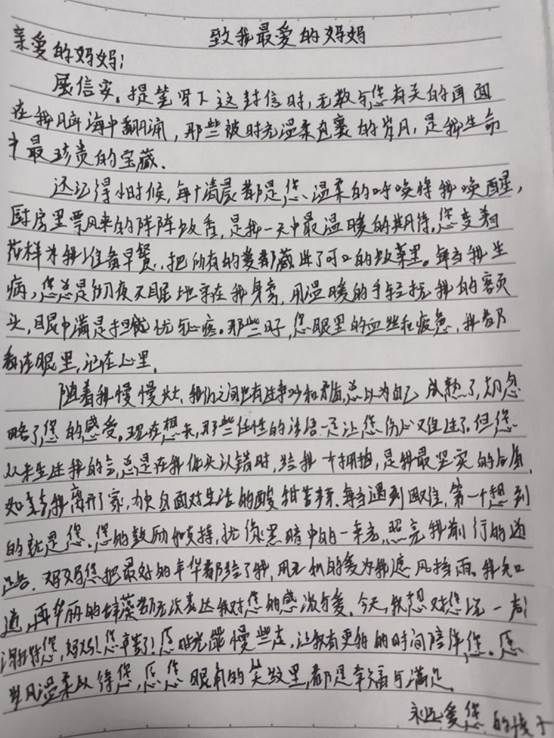 致我最爱的妈妈
亲爱的妈妈:
展信安。提笔写下这封信时,无数与您有关的画面
在我脑海中翻涌,那些被时光温柔包裹的岁月,是我生命
中最珍贵的宝藏.
还记得小时候,每个清晨都是您温柔的呼唤将我唤醒,
厨房里飘来的阵阵饭香,是我一天中最温暖的期待,您变着
花样为我准备早餐,把所有的爱都藏进了可口的饭菜里。每当我生
病,您总是彻夜不眠地守在我身旁,用温暖的手轻抚我的额
头,眼中满是担忧与心疼。那些时,您眼里的血丝和疲惫,我都
看在眼里,记在心里.
随着我慢慢长大,我们之间也有过争吵和矛盾,总以为自己成熟了,却忽
略了您的感受。现在想来,那些任性的话语一定让您伤心又难过了。但您
从未生过我的气,总是在我低头认错时,给我一个拥抱,是我最坚实的后盾.
如今我离开了家,独自面对生活的酸甜苦辣.每当遇到困难,第一个想到
的就是您.您的鼓励和支持,犹如黑暗中的一束光,照亮我前行的道
路.妈妈您把最好的年华都给了我,用无私的爱为我遮风挡雨.我知
道,再华丽的辞藻都无法表达我对您的感激与爱。今天,我想对您说一声
谢谢您,妈妈!您辛苦了!愿时光能慢些走,让我有更多的时间陪伴您。愿
岁月温柔以待您,愿您眼角的笑纹里,都是幸福与满足.
永远爱您的孩子